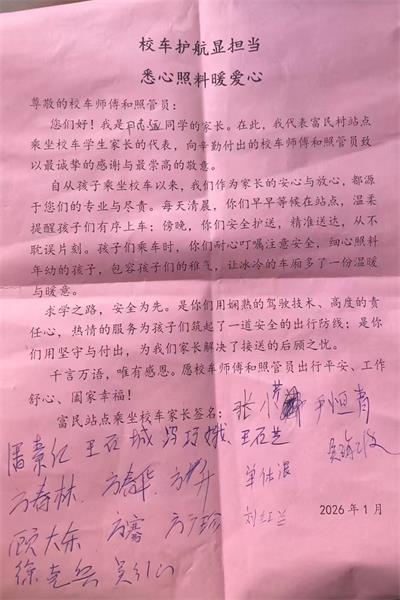 校车护航显担当
悉心照料暖爱心
尊敬的校车师傅和照管员：
您们好！我是同学的家长。在此，我代表富民村站点
乘坐校车学生家长的代表，向辛勤付出的校车师傅和照管员致
以最诚挚的感谢与最崇高的敬意。
自从孩子乘坐校车以来，我们作为家长的安心与放心，都源
于您们的专业与尽责。每天清晨，你们早早等候在站点，温柔
提醒孩子们有序上车；傍晚，你们安全护送，精准送达，从不
耽误片刻。孩子们乘车时，你们耐心叮嘱注意安全，细心照料
年幼的孩子，包容孩子们的稚气，让冰冷的车厢多了一份温暖
与暖意。
求学之路，安全为先。是你们用娴熟的驾驶技术、高度的责
任心，热情的服务为孩子们筑起了一道安全的出行防线；是你
们用坚守与付出，为我们家长解决了接送的后顾之忧。
千言万语，唯有感恩。愿校车师傅和照管员出行平安、工作
舒心、阖家幸福！
富民站点乘坐校车家长签名：张小 尹恒青
潘素仁 王石城 冯巧娥 王石芝
方春林 方春华 方升 单仕浪
顾大东 方骞 方广珍 刘红兰
2026年1月
徐克兵 吴